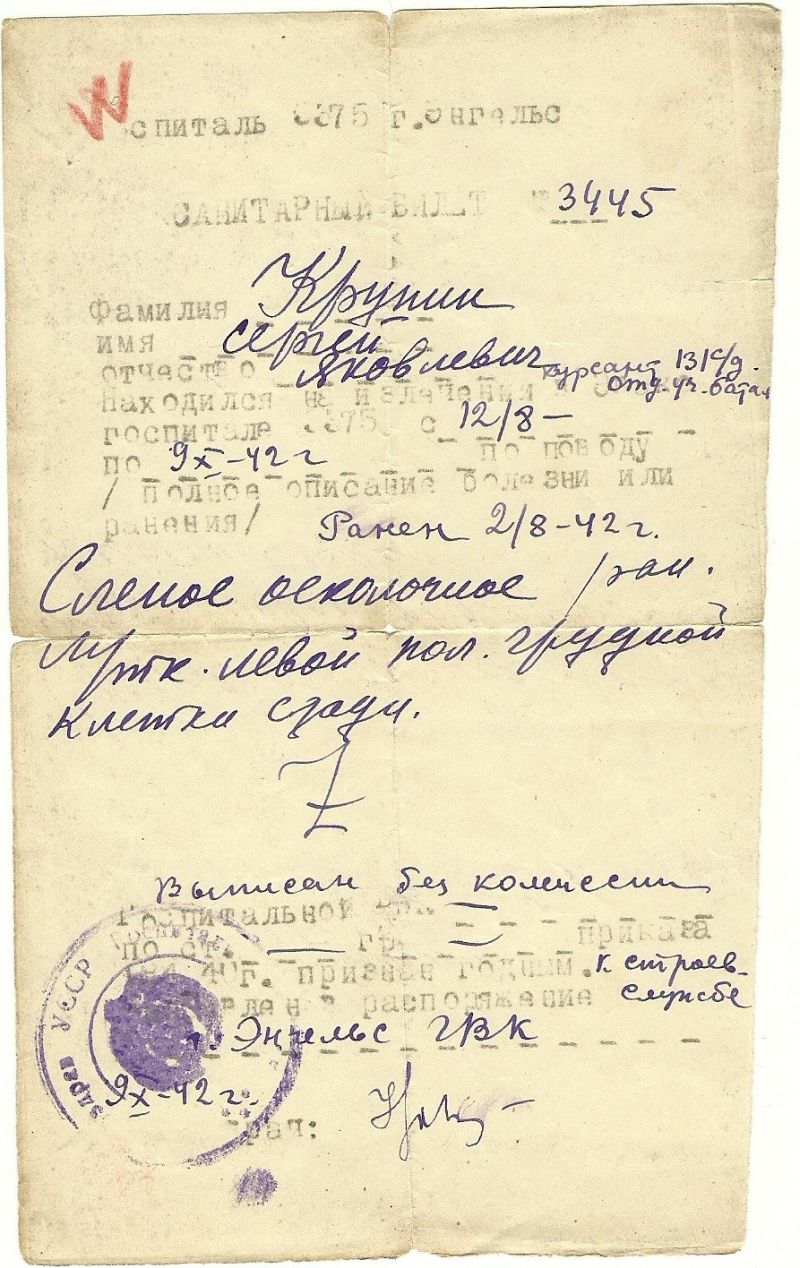 спиталь 3376 г.Энгельс
САНИТАРНЫЙ БИЛЕТ 3445
Фамилия Крупин
имя Сергей
отчество Яковлевич курсант 131 с/д.
отд. уч. батал
находился на излечении в
госпитале 3376 с 12/8 –
по 9X-42 г по поводу
/ полное описание болезни или
ранения/ Ранен 2/8-42 г.
Слепое осколочное ран.
мягк. левой пол. грудной
клетки сзади.
Z
Выписан без комиссии
Госпитальной
по ст. — гр. — приказа
40г. признан годным. к строев.
службе
распоряжение
г. Энгельс ГВК
9X-42 г.
врач:
здрав УССР